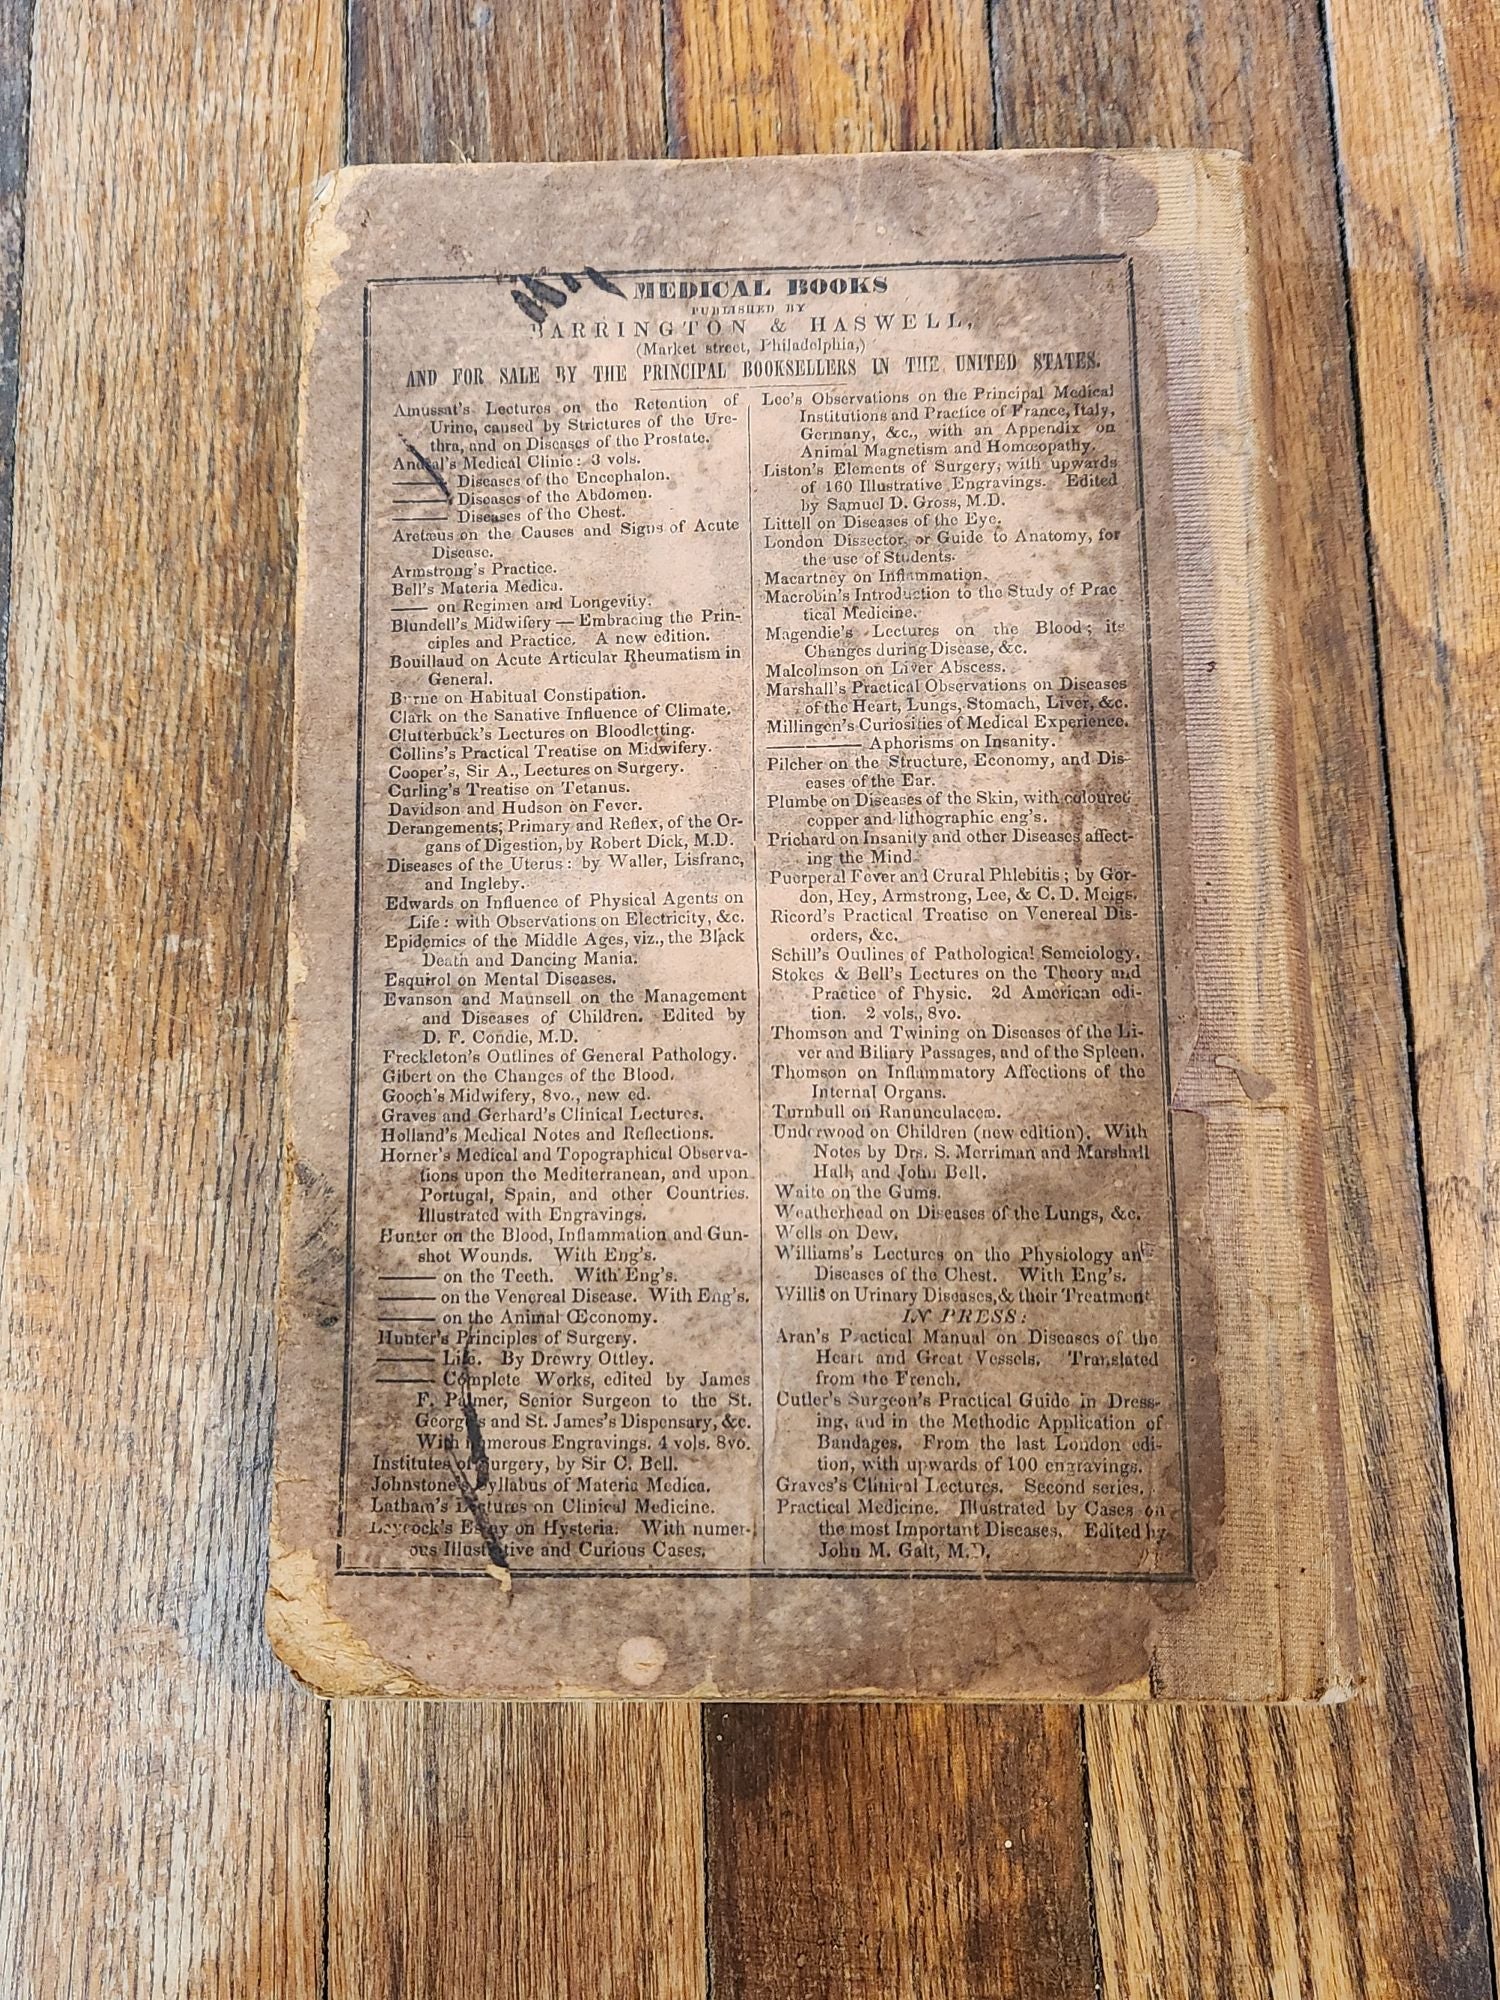 MEDICAL BOOKS
PUBLISHED BY
BARRINGTON & HASWELL,
(Market street, Philadelphia,)
AND FOR SALE BY THE PRINCIPAL BOOKSELLERS IN THE UNITED STATES.
Amussat's Lectures on the Retention of
Urine, caused by Strictures of the Ure-
thra, and on Diseases of the Prostate.
Andral's Medical Clinic: 3 vols.
—— Diseases of the Encephalon.
—— Diseases of the Abdomen.
—— Diseases of the Chest.
Aretæus on the Causes and Signs of Acute
Disease.
Armstrong's Practice.
Bell's Materia Medica.
—— on Regimen and Longevity.
Blundell's Midwifery — Embracing the Prin-
ciples and Practice. A new edition.
Bouillaud on Acute Articular Rheumatism in
General.
Burne on Habitual Constipation.
Clark on the Sanative Influence of Climate.
Clutterbuck's Lectures on Bloodletting.
Collins's Practical Treatise on Midwifery.
Cooper's, Sir A., Lectures on Surgery.
Curling's Treatise on Tetanus.
Davidson and Hudson on Fever.
Derangements, Primary and Reflex, of the Or-
gans of Digestion, by Robert Dick, M.D.
Diseases of the Uterus: by Waller, Lisfranc,
and Ingleby.
Edwards on Influence of Physical Agents on
Life: with Observations on Electricity, &c.
Epidemics of the Middle Ages, viz., the Black
Death and Dancing Mania.
Esquirol on Mental Diseases.
Evanson and Maunsell on the Management
and Diseases of Children. Edited by
D. F. Condie, M.D.
Freckleton's Outlines of General Pathology.
Gibert on the Changes of the Blood.
Gooch's Midwifery, 8vo., new ed.
Graves and Gerhard's Clinical Lectures.
Holland's Medical Notes and Reflections.
Horner's Medical and Topographical Observa-
tions upon the Mediterranean, and upon
Portugal, Spain, and other Countries.
Illustrated with Engravings.
Hunter on the Blood, Inflammation and Gun-
shot Wounds. With Eng's.
—— on the Teeth. With Eng's.
—— on the Venereal Disease. With Eng's.
—— on the Animal Œconomy.
Hunter's Principles of Surgery.
—— Life. By Drewry Ottley.
—— Complete Works, edited by James
F. Palmer, Senior Surgeon to the St.
George's and St. James's Dispensary, &c.
With numerous Engravings. 4 vols. 8vo.
Institutes of Surgery, by Sir C. Bell.
Johnstone's Syllabus of Materia Medica.
Latham's Lectures on Clinical Medicine.
Laycock's Essay on Hysteria. With numer-
ous Illustrative and Curious Cases.
Lee's Observations on the Principal Medical
Institutions and Practice of France, Italy,
Germany, &c., with an Appendix on
Animal Magnetism and Homœopathy.
Liston's Elements of Surgery, with upwards
of 160 Illustrative Engravings. Edited
by Samuel D. Gross, M.D.
Littell on Diseases of the Eye.
London Dissector, or Guide to Anatomy, for
the use of Students.
Macartney on Inflammation.
Macrobin's Introduction to the Study of Prac
tical Medicine.
Magendie's Lectures on the Blood; its
Changes during Disease, &c.
Malcolmson on Liver Abscess.
Marshall's Practical Observations on Diseases
of the Heart, Lungs, Stomach, Liver, &c.
Millingen's Curiosities of Medical Experience.
—— Aphorisms on Insanity.
Pilcher on the Structure, Economy, and Dis-
eases of the Ear.
Plumbe on Diseases of the Skin, with coloured
copper and lithographic eng's.
Prichard on Insanity and other Diseases affect-
ing the Mind.
Puerperal Fever and Crural Phlebitis; by Gor-
don, Hey, Armstrong, Lee, & C. D. Meigs.
Ricord's Practical Treatise on Venereal Dis-
orders, &c.
Schill's Outlines of Pathological Semeiology.
Stokes & Bell's Lectures on the Theory and
Practice of Physic. 2d American edi-
tion. 2 vols., 8vo.
Thomson and Twining on Diseases of the Li-
ver and Biliary Passages, and of the Spleen.
Thomson on Inflammatory Affections of the
Internal Organs.
Turnbull on Ranunculaceæ.
Underwood on Children (new edition). With
Notes by Drs. S. Merriman and Marshall
Hall, and John Bell.
Waite on the Gums.
Weatherhead on Diseases of the Lungs, &c.
Wells on Dew.
Williams's Lectures on the Physiology and
Diseases of the Chest. With Eng's.
Willis on Urinary Diseases, & their Treatment
IN PRESS:
Aran's Practical Manual on Diseases of the
Heart and Great Vessels. Translated
from the French.
Cutler's Surgeon's Practical Guide in Dress-
ing, and in the Methodic Application of
Bandages. From the last London edi-
tion, with upwards of 100 engravings.
Graves's Clinical Lectures. Second series.
Practical Medicine. Illustrated by Cases on
the most Important Diseases. Edited by
John M. Galt, M.D.